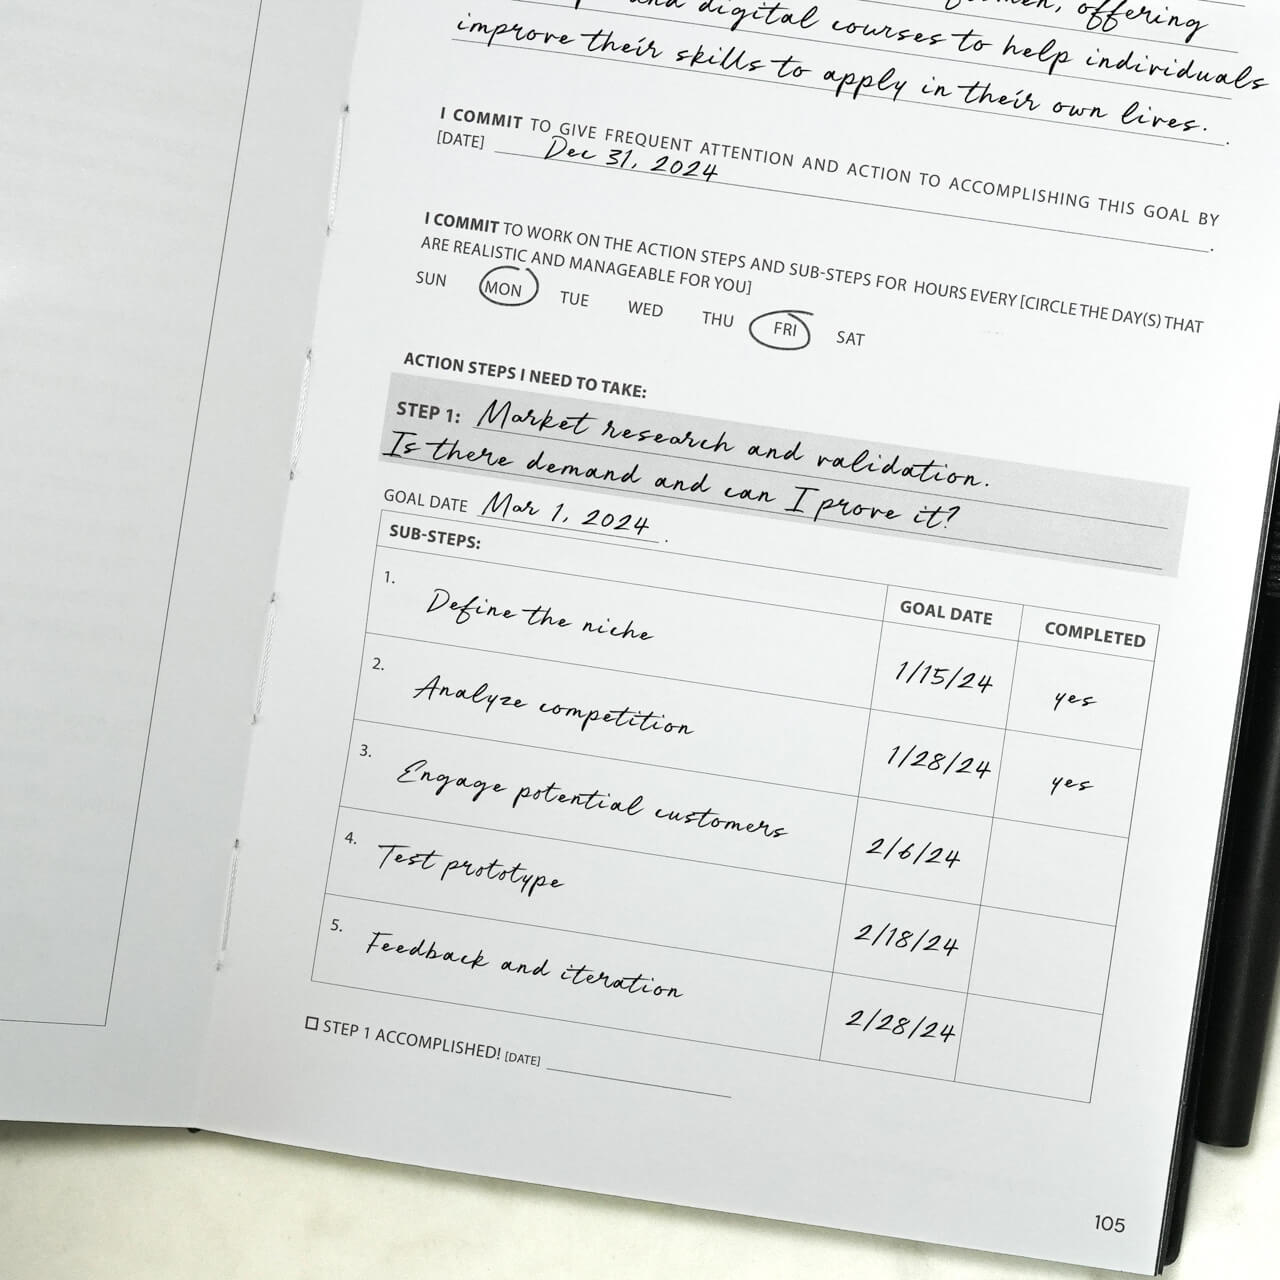 offering
and digital courses to help individuals
improve their skills to apply in their own lives.
I COMMIT TO GIVE FREQUENT ATTENTION AND ACTION TO ACCOMPLISHING THIS GOAL BY
[DATE] Dec 31, 2024.
I COMMIT TO WORK ON THE ACTION STEPS AND SUB-STEPS FOR HOURS EVERY [CIRCLE THE DAY(S) THAT
ARE REALISTIC AND MANAGEABLE FOR YOU]
SUN MON TUE WED THU FRI SAT
ACTION STEPS I NEED TO TAKE:
STEP 1: Market research and validation.
Is there demand and can I prove it?
GOAL DATE Mar 1, 2024.
SUB-STEPS: GOAL DATE COMPLETED
1. Define the niche 1/15/24 yes
2. Analyze competition 1/28/24 yes
3. Engage potential customers 2/6/24
4. Test prototype 2/18/24
5. Feedback and iteration 2/28/24
STEP 1 ACCOMPLISHED! [DATE]
105